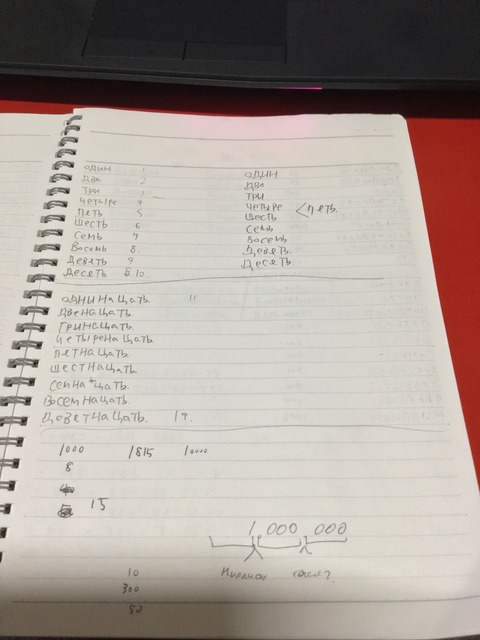 один 1
два 2
три 3
четыре 4
пять 5
шесть 6
семь 7
восемь 8
девять 9
десять 10
один
два
три
четыре
пять
шесть
семь
восемь
девять
десять
одининацать 11
двенацать
тринацать
четыренацать
петнацать
шестнацать
семнацать
восемнацать
деветнацать 19
1000 1815 10000
8
15
1.000 000
миллион
10
300
50